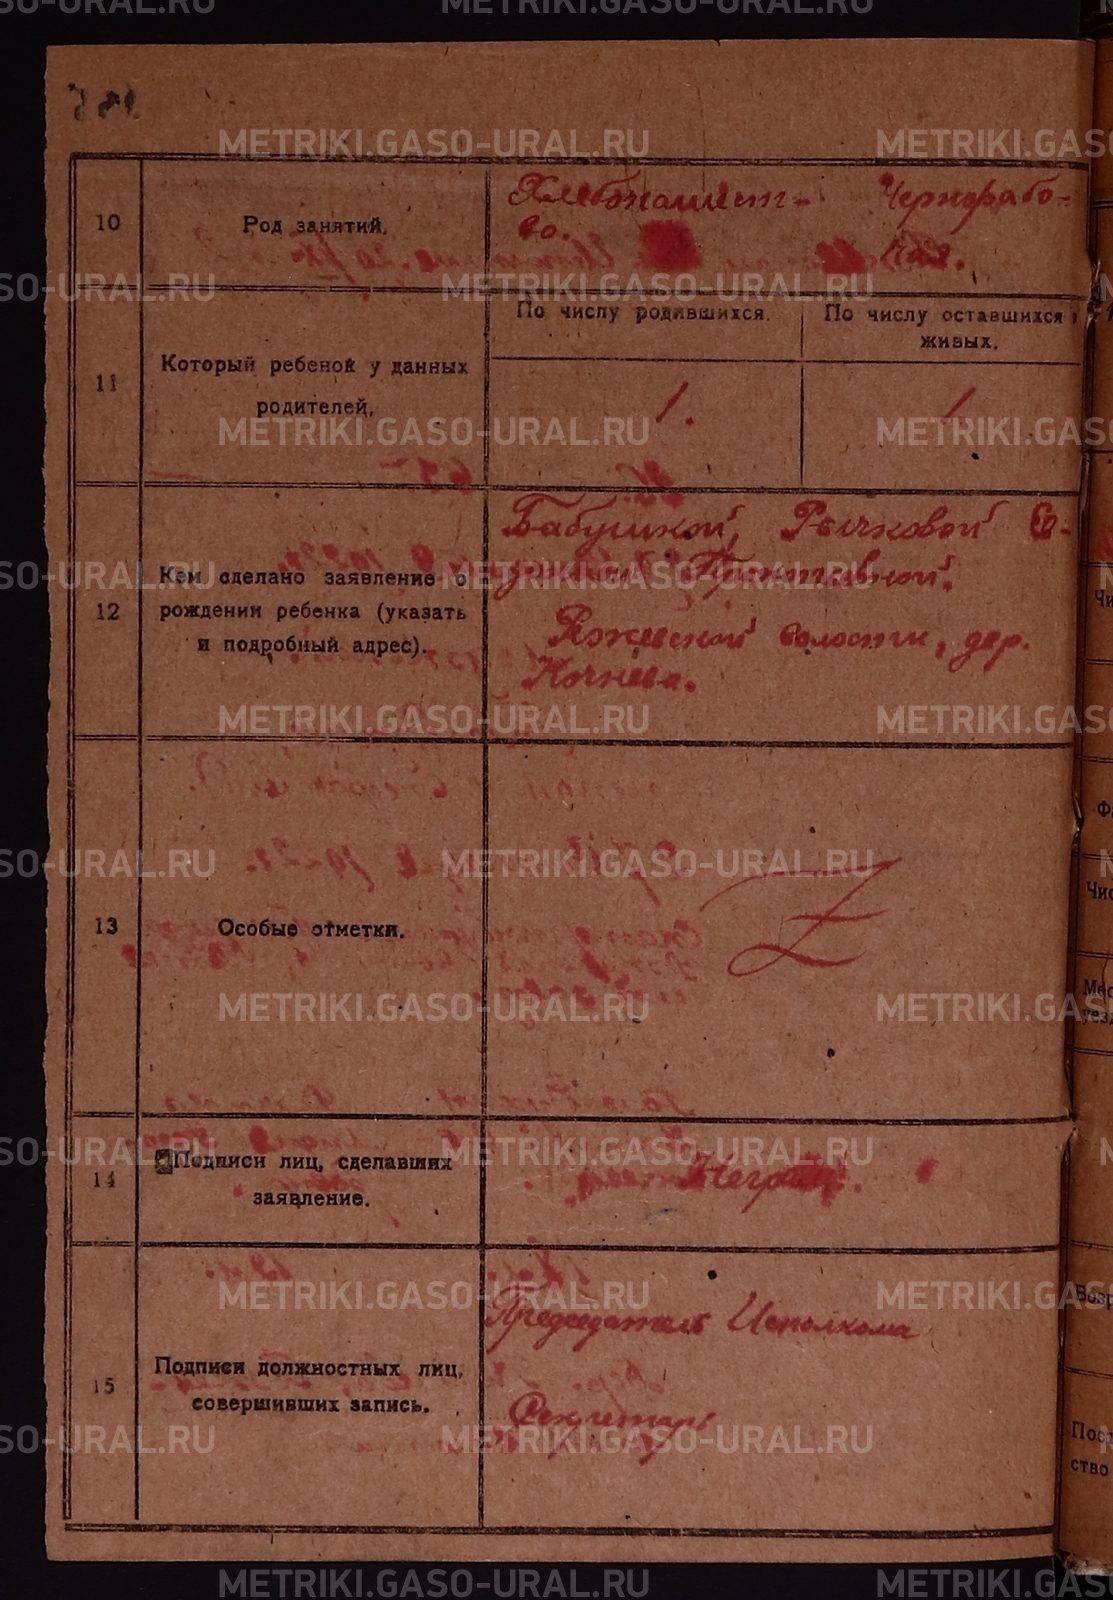 METRIKI.GASO-URAL.RU
10
Род занятий.
Хлебопашест-
во.
Чернорабо-
чая.
11
Который ребенок у данных
родителей.
По числу родившихся.
По числу оставшихся
живых.
1.
1
12
Кем сделано заявление о
рождении ребенка (указать
и подробный адрес).
Бабушкой, Рычковой
волости, дер.
Кочнева.
13
Особые отметки.
Z
14
Подписи лиц, сделавших
заявление.
15
Подписи должностных лиц,
совершивших запись.
Председатель Исполкома
Секретарь